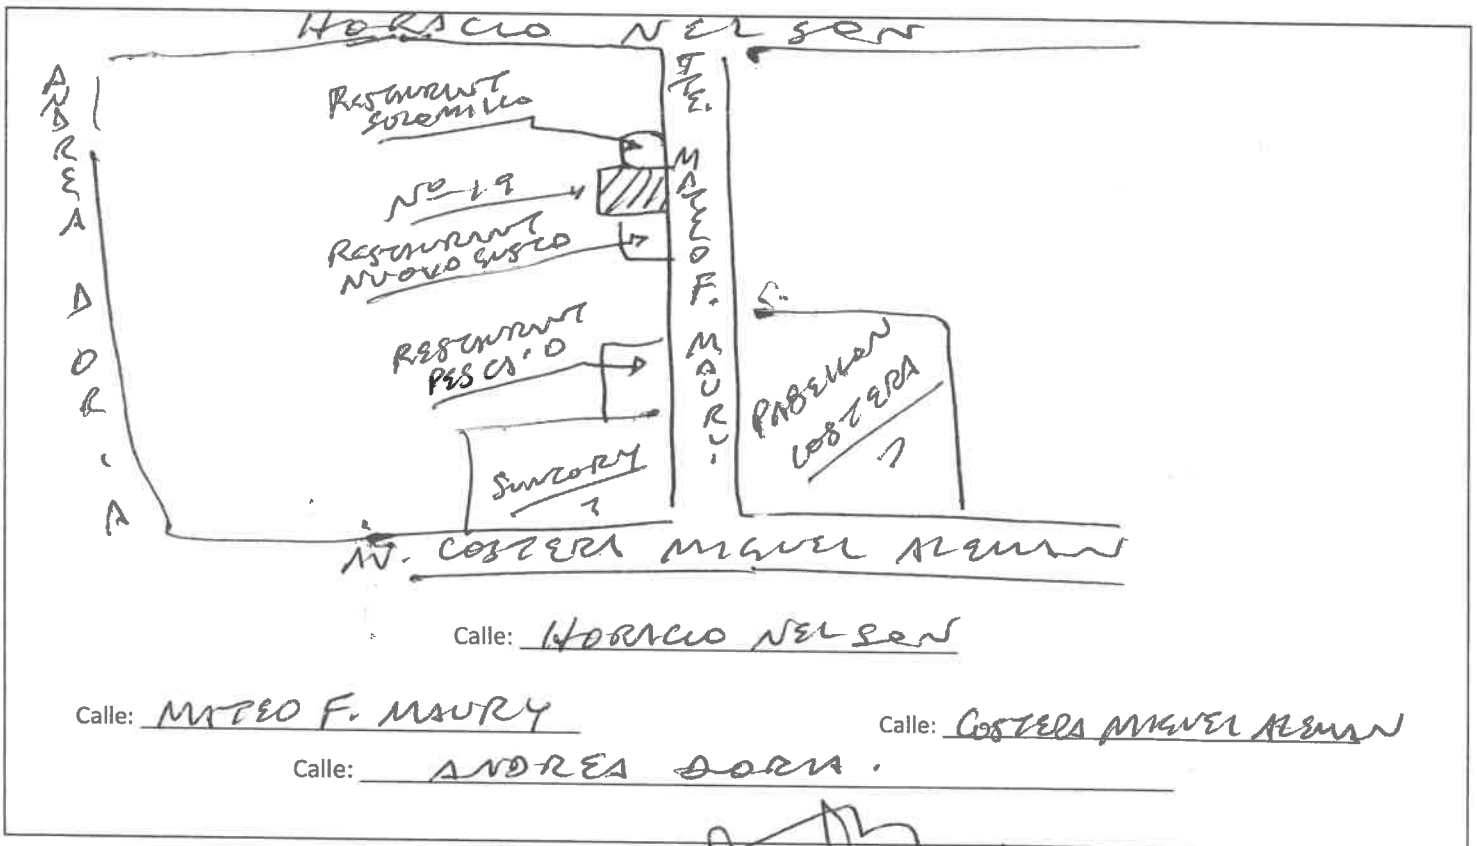 HORACIO NELSON
ANDREA DORIA
TTE. MATEO F. MAURY
RESTAURANT
SOLOMILLO
Nº 19
RESTAURANT
NUOVO GUSTO
RESTAURANT
PESCA'O
PABELLON
COSTERA
SUNTORY
AV. COSTERA MIGUEL ALEMAN
Calle: HORACIO NELSON
Calle: MATEO F. MAURY
Calle: COSTERA MIGUEL ALEMAN
Calle: ANDREA DORIA.